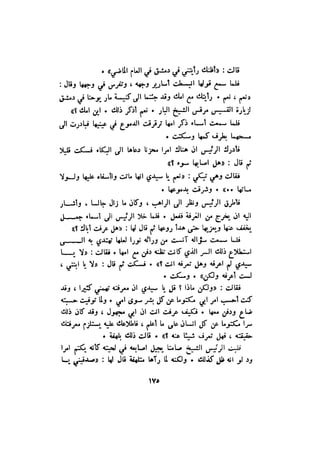 قالت : «أظنك رأيتني في دمشق في العام الماضي» •
فلما سمع قولها انبسطت أسارير وجهه ، وتفرس في وجهها وقال :
«نعم ، نعم • رأيتك مع امك وقد جئتما الى كنيسة مار يوحنا في دمشق
لزيارة القسيس مرقس الشيخ البار • نعم أذكر ذلك • اين امك ؟»
فلما سمعت أسماء ذكر امها ترقرقت الدموع في عينيها فبادرت الى
مسحهما بطرف كمها وسكتت •
فأدرك الرئيس ان هناك امرا محزنا دعاها الى البكاء فسكت قليلا
ثم قال : «هل اصابها سوء ؟»
فقالت وهي تبكي : «نعم يا سيدي انها ماتت وااسفاه عليها ولولا
مماتها ••» وشرقت بدموعها •
فأطرق الرئيس ونظر الى الراهب ، وكان ما زال جالسا ، وأشار
اليه ان يخرج من الغرفة ففعل • فلما خلا الرئيس الى أسماء جعل
يخفف عنها ويعزيها حتى هدأ روعها ثم قال لها : «هل عرفت أباك ؟»
فلما سمعت سؤاله آنست من ورائه نورا لعلها تهتدي به الى
استطلاع ذلك السر الذي كانت تظنه دفن مع امها • فقالت : «لا يا
سيدي لم اعرفه وهل تعرفه انت ؟» • فسكت ثم قال : «لا يا ابنتي ،
لست أعرفه ولكن» • وسكت •
فقالت : «ولكن ماذا ؟ قل يا سيدي ان معرفته تهمني كثيرا ، وقد
كنت أحسب امر ابي مكتوما عن كل بشر سوى امي • ولما توفيت حسبته
ضاع ودفن معها • فكيف عرفت انت ان ابي مجهول ، وقد كان ذلك
سرا مكتوما عن كل انسان على ما أعلم ، فاطلاعك عليه يستلزم معرفتك
حقيقته ، فهل تعرف شيئا عنه ؟» • قالت ذلك بلهفة •
فلبث الرئيس الشيخ صامتا يجيل اصابعه في لحيته كأنه يكتم امرا
ود لو انه ظل كذلك • ولكنه لما رآها متلهفة قال لها : «صدقيني يا
١٧٥